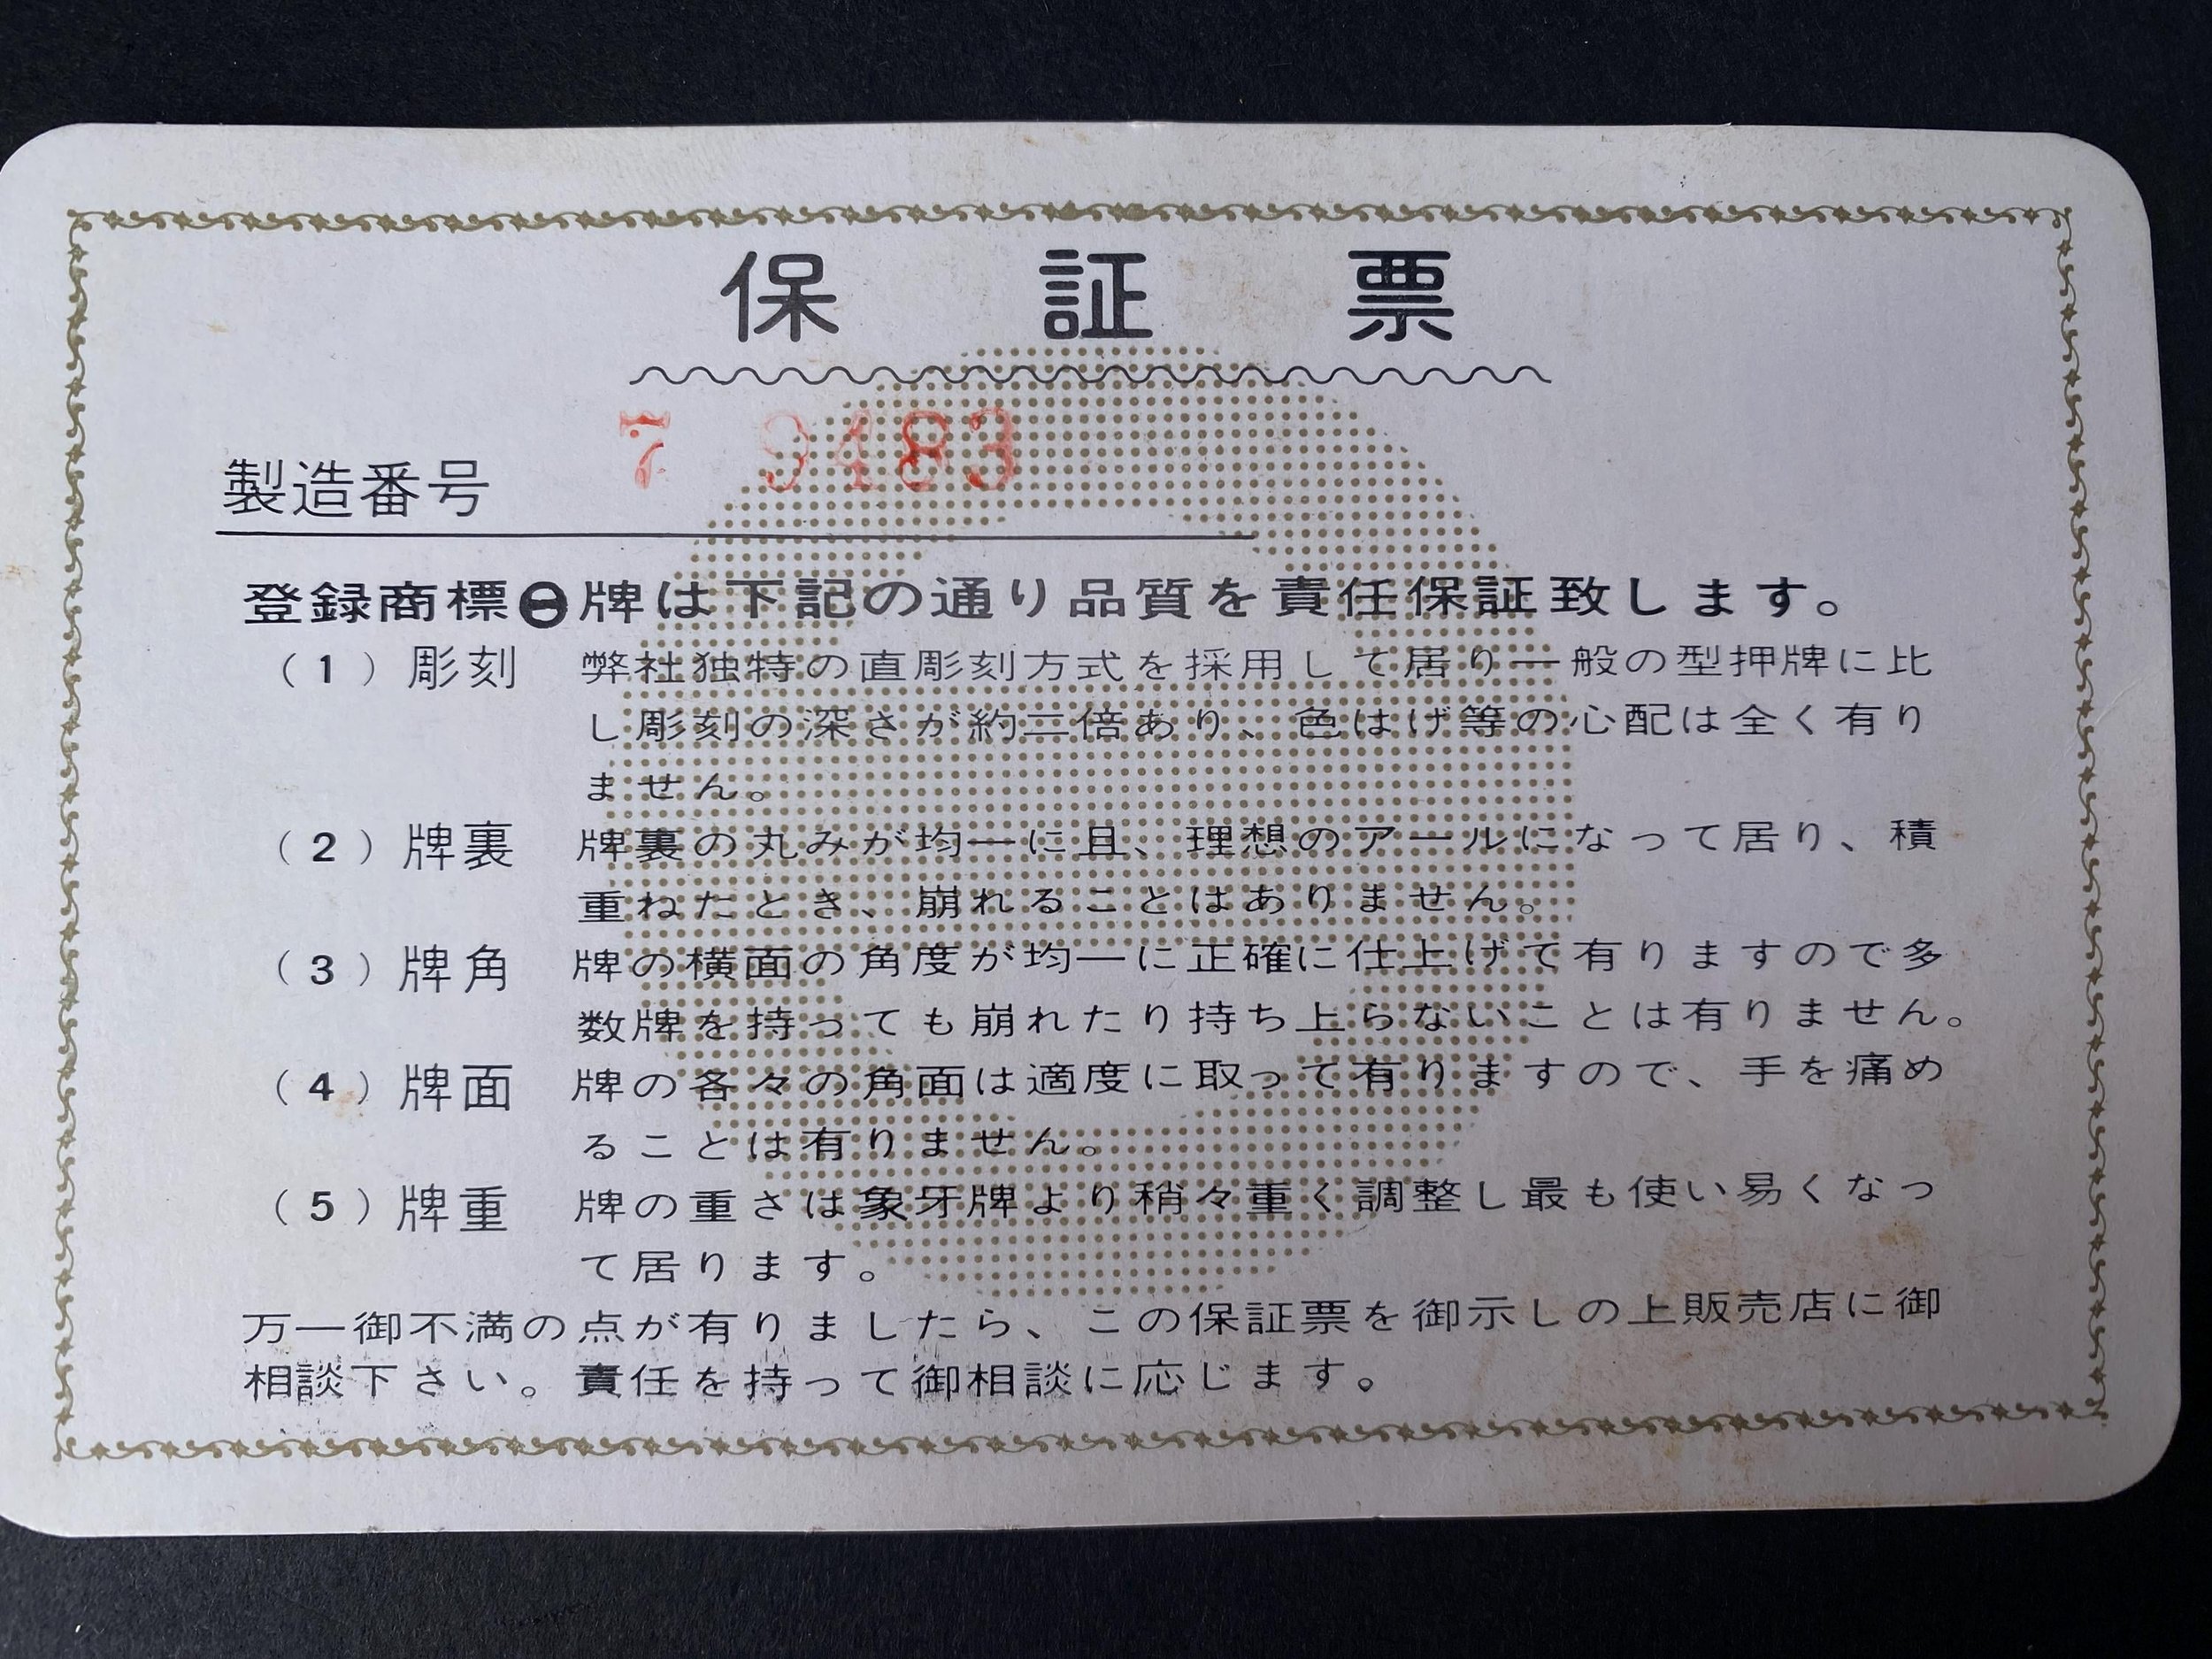 保証票
製造番号 7 9483
登録商標㊀牌は下記の通り品質を責任保証致します。
(1)彫刻 弊社独特の直彫刻方式を採用して居り一般の型押牌に比
し彫刻の深さが約二倍あり、色はげ等の心配は全く有り
ません。
(2)牌裏 牌裏の丸みが均一に且、理想のアールになって居り、積
重ねたとき、崩れることはありません。
(3)牌角 牌の横面の角度が均一に正確に仕上げて有りますので多
数牌を持っても崩れたり持ち上らないことは有りません。
(4)牌面 牌の各々の角面は適度に取って有りますので、手を痛め
ることは有りません。
(5)牌重 牌の重さは象牙牌より稍々重く調整し最も使い易くなっ
て居ります。
万一御不満の点が有りましたら、この保証票を御示しの上販売店に御
相談下さい。責任を持って御相談に応じます。